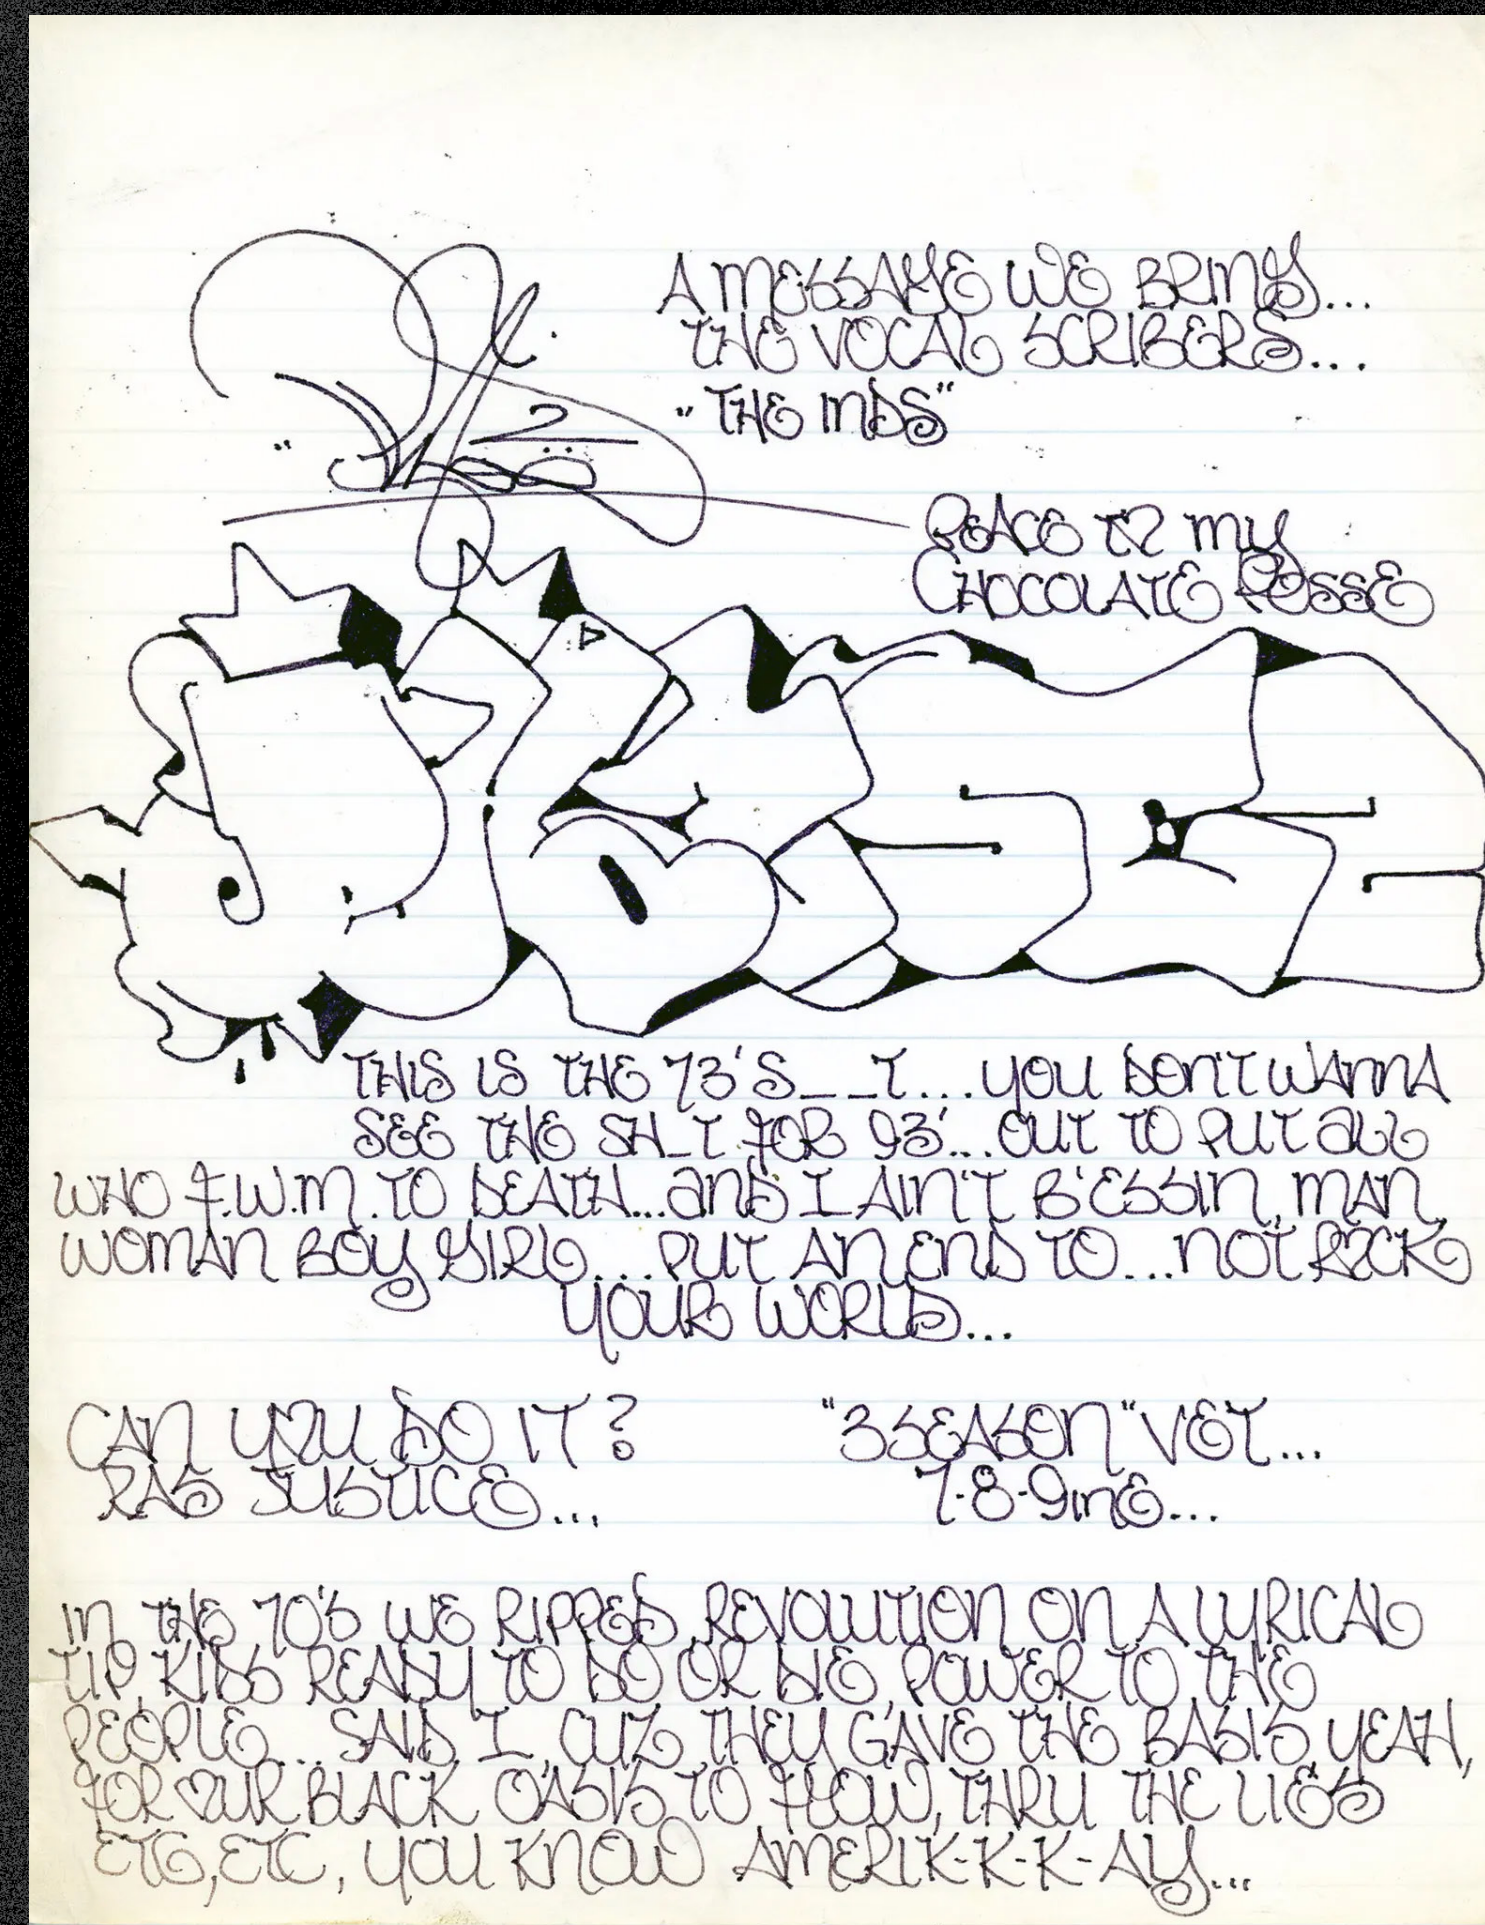 A MESSAGE WE BRING...
THE VOCAL SCRIBERS...
"THE MDS"
2
PEACE TO MY
CHOCOLATE POSSE
THIS IS THE 73'S__T...YOU DON'T WANNA
SEE THE SH_T FOR 93'...OUT TO PUT ALL
WHO F.W.M. TO DEATH...AND I AIN'T B'ESSIN, MAN,
WOMAN BOY GIRL...PUT AN END TO...NOT ROCK
YOUR WORLD...
CAN YOU DO IT?
RAS JUSTICE...
"3 SEASON" VET...
7-8-9INE...
IN THE 70'S WE RIPPED, REVOLUTION ON A LYRICAL
TIP, KIDS READY TO DO OR DIE, POWER TO THE
PEOPLE... SAID I, CUZ THEY GAVE THE BASIS, YEAH,
FOR OUR BLACK OASIS TO FLOW, THRU THE LIES
ETC, ETC, YOU KNOW AMERIK-K-K-AY...